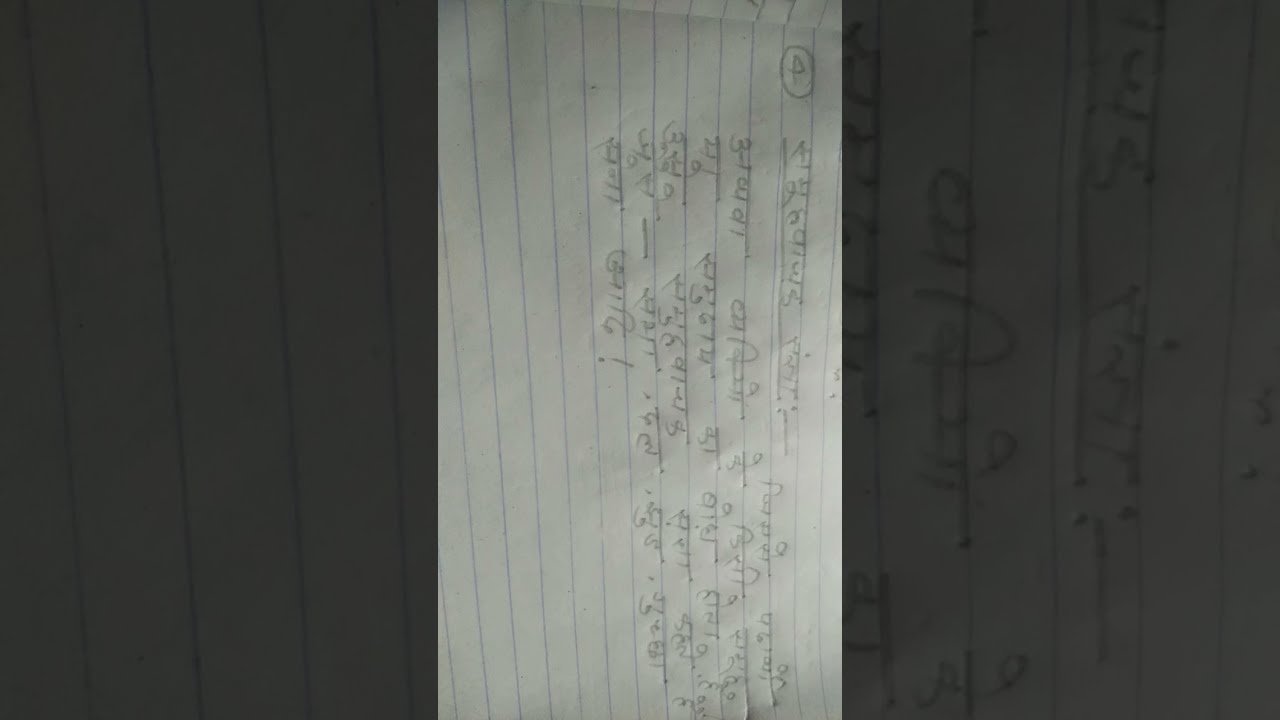 ④ समूहवाचक संज्ञा :—
जिससे पदार्थों
अथवा व्यक्तियों के किसी समूहों
या समुदाय का बोध होता है,
उसे समूहवाचक संज्ञा कहते हैं
जैसे — सभा, दल, झुंड, गुच्छा,
सेना आदि ।